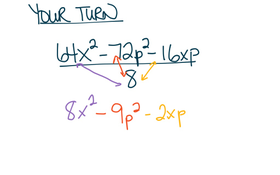 YOUR TURN
64x² - 72p² - 16xp
8
8x² - 9p² - 2xp